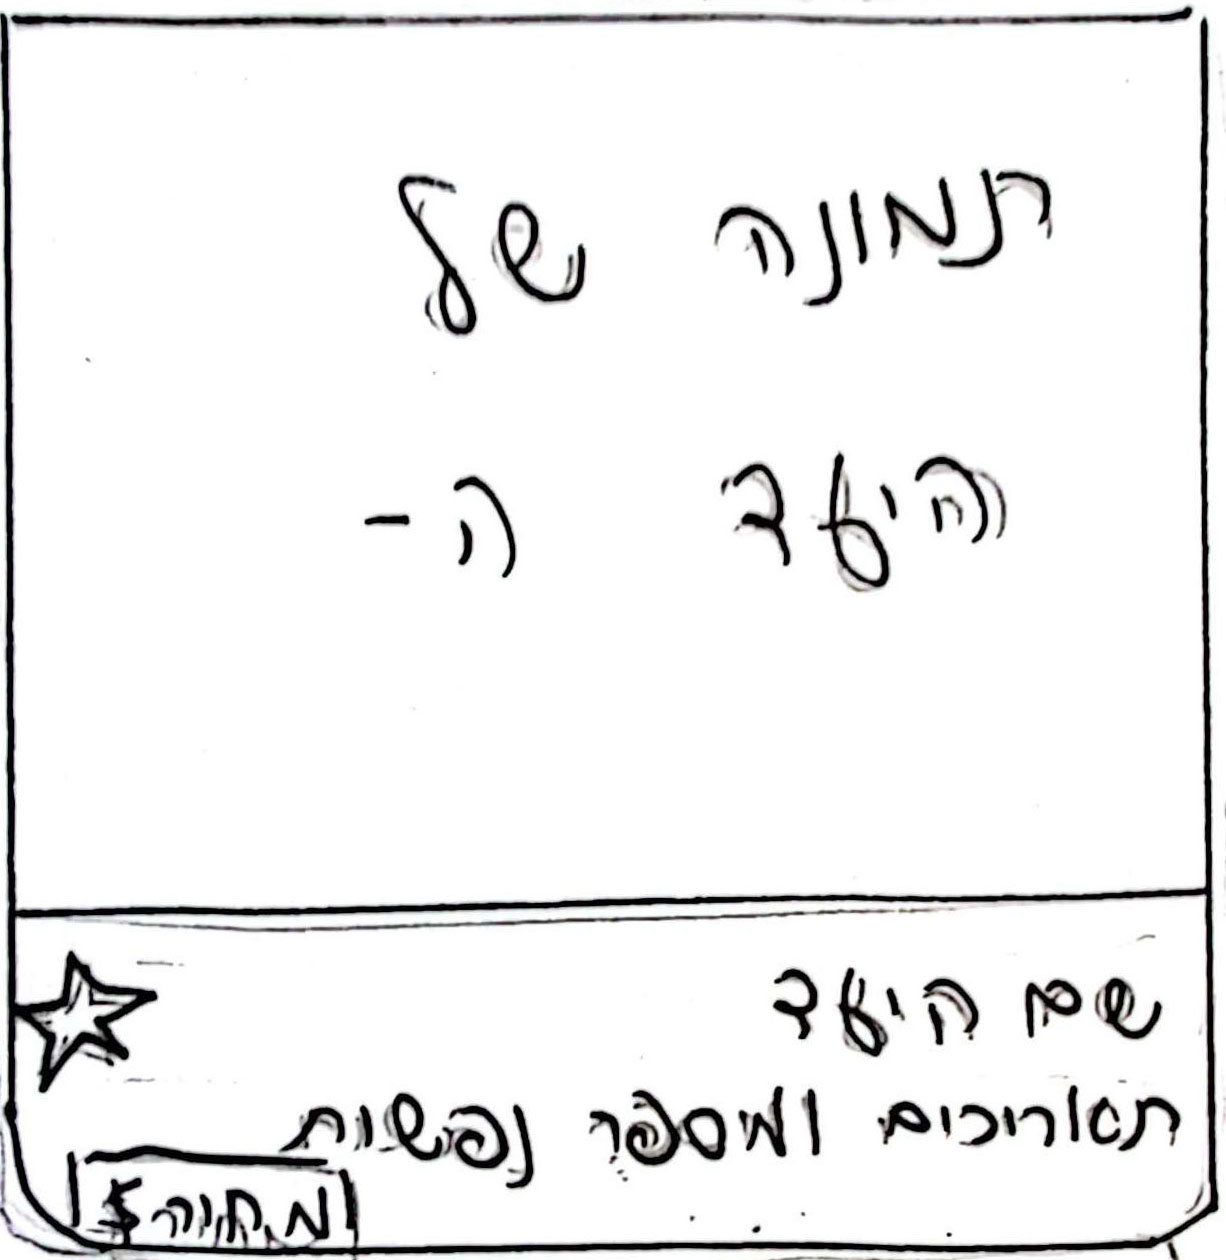 תמונה של
היעד ה-
שם היעד
תאריכים ומספר נפשות